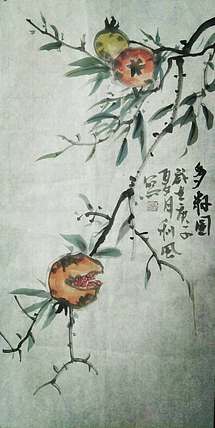 多籽图
歲在庚子
夏月利
写